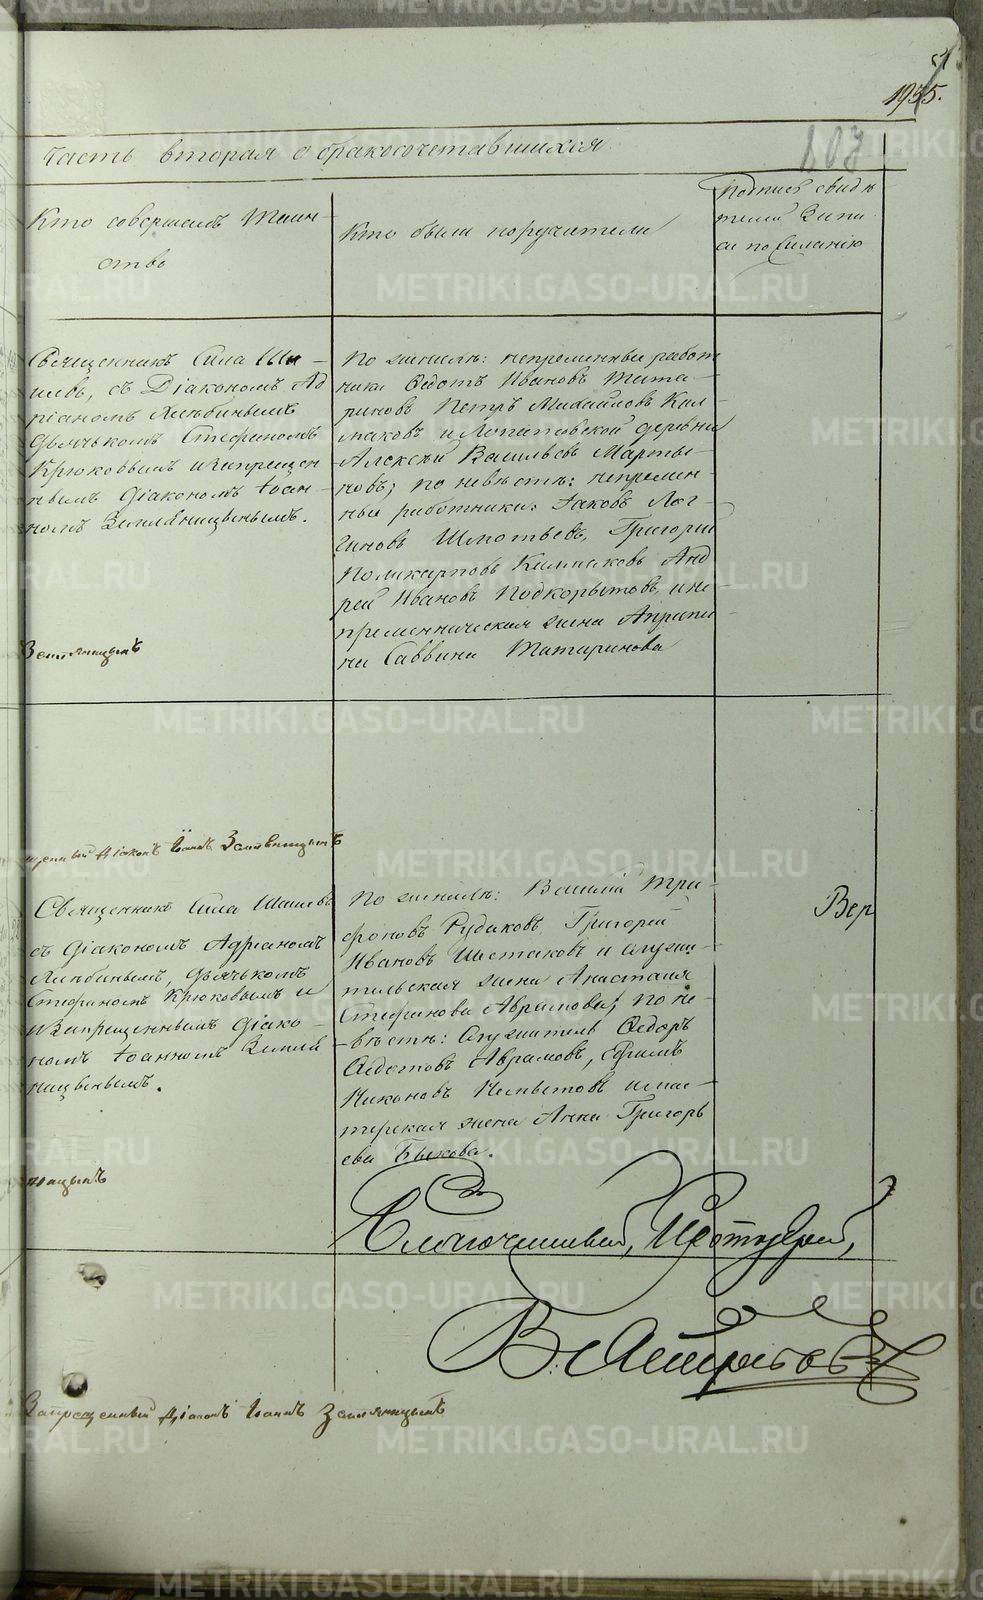 195.
часть вторая о бракосочетавшихся
807
Кто совершалъ Таин-
ство
Кто были поручители
Подпись свидѣ
телей Запи
си по желанію
Священникъ Сила Ши-
шевъ, съ Діакономъ Ад
ріаномъ Любинымъ
Дьячькомъ Стефаномъ
Крюковымъ и Запрещен
нымъ Діакономъ Іоан-
номъ Земляницынымъ.
Земляницынъ
По женихѣ: непременные работ
ники Ѳедотъ Ивановъ Тата-
риновъ Петръ Михайловъ Кал-
маковъ и Лопатовской деревни
Алексѣй Васильевъ Марты-
новъ; по невѣстѣ: непремен-
ные работники: Іаковъ Лог-
гиновъ Шмотьевъ, Григорій
Поликарповъ Калмаковъ Анд
рей Ивановъ Подкорытовъ, и не-
пременническая жена Агрипи
на Саввина Татаринова
щенный Діаконъ Іоаннъ Земляницынъ
Священникъ Сила Шишевъ
съ Діакономъ Адріаномъ
Любинымъ, Дьячькомъ
Стефаномъ Крюковымъ и
Запрещеннымъ Діако-
номъ Іоанномъ Земля
ницынымъ.
ницынъ
По женихѣ: Василій Три-
фоновъ Рудаковъ, Григорій
Ивановъ Шестаковъ и служи-
тельская жена Анастасія
Стефанова Аврамова; по не-
вѣстѣ: Служитель Ѳедоръ
Ѳедотовъ Аврамовъ, Ефимъ
Никоновъ и мас-
терская жена Анна Григорь
ева Быкова.
Вер
Благочинный, Протоіерей,
В.
Запрещенный Діаконъ Іоаннъ Земляницынъ
METRIKI.GASO-URAL.RU